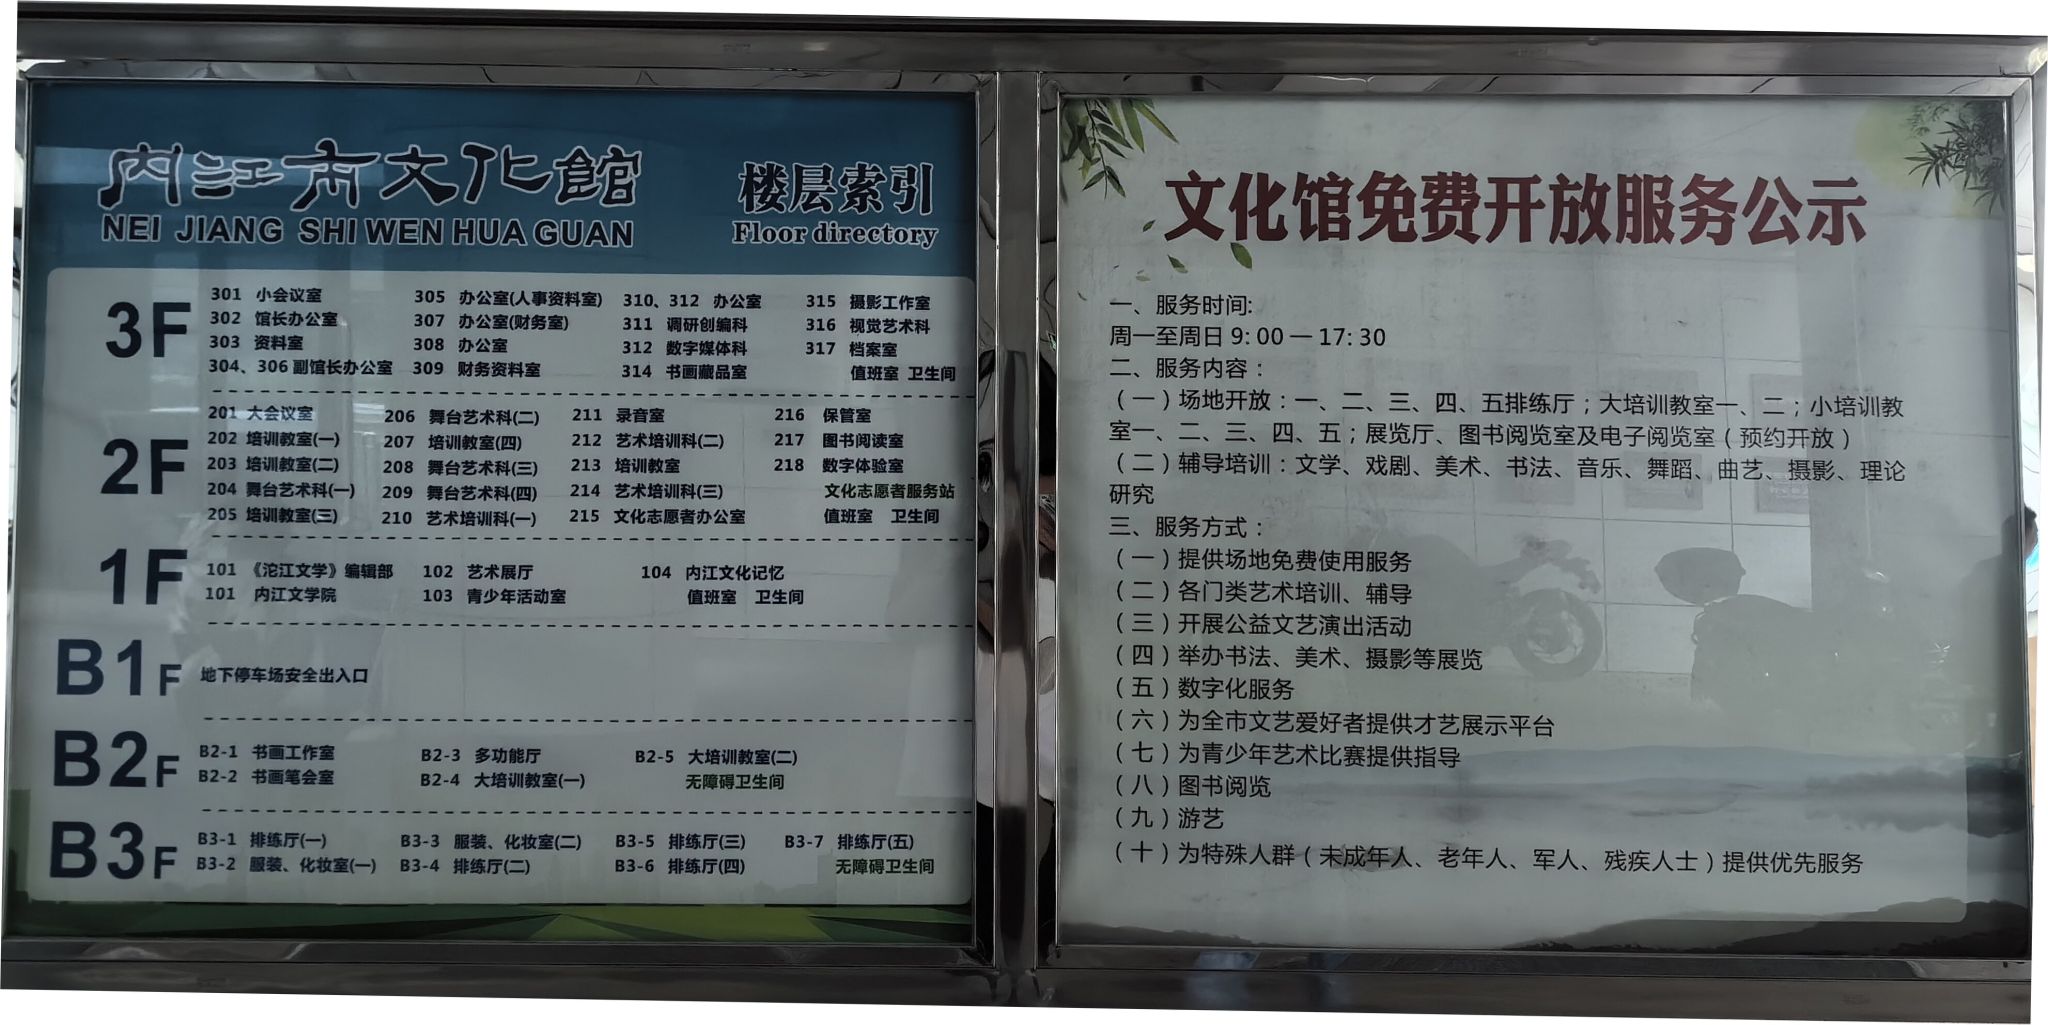 内江市文化館
NEI JIANG SHI WEN HUA GUAN
楼层索引
Floor directory
3F
301 小会议室 305 办公室(人事资料室) 310、312 办公室 315 摄影工作室
302 馆长办公室 307 办公室(财务室) 311 调研创编科 316 视觉艺术科
303 资料室 308 办公室 312 数字媒体科 317 档案室
304、306 副馆长办公室 309 财务资料室 314 书画藏品室 值班室 卫生间
2F
201 大会议室 206 舞台艺术科(二) 211 录音室 216 保管室
202 培训教室(一) 207 培训教室(四) 212 艺术培训科(二) 217 图书阅读室
203 培训教室(二) 208 舞台艺术科(三) 213 培训教室 218 数字体验室
204 舞台艺术科(一) 209 舞台艺术科(四) 214 艺术培训科(三) 文化志愿者服务站
205 培训教室(三) 210 艺术培训科(一) 215 文化志愿者办公室 值班室 卫生间
1F
101 《沱江文学》编辑部 102 艺术展厅 104 内江文化记忆
101 内江文学院 103 青少年活动室 值班室 卫生间
B1F
地下停车场安全出入口
B2F
B2-1 书画工作室 B2-3 多功能厅 B2-5 大培训教室(二)
B2-2 书画笔会室 B2-4 大培训教室(一) 无障碍卫生间
B3F
B3-1 排练厅(一) B3-3 服装、化妆室(二) B3-5 排练厅(三) B3-7 排练厅(五)
B3-2 服装、化妆室(一) B3-4 排练厅(二) B3-6 排练厅(四) 无障碍卫生间
文化馆免费开放服务公示
一、服务时间:
周一至周日 9: 00 — 17: 30
二、服务内容：
（一）场地开放：一、二、三、四、五排练厅；大培训教室一、二；小培训教
室一、二、三、四、五；展览厅、图书阅览室及电子阅览室（预约开放）
（二）辅导培训：文学、戏剧、美术、书法、音乐、舞蹈、曲艺、摄影、理论
研究
三、服务方式：
（一）提供场地免费使用服务
（二）各门类艺术培训、辅导
（三）开展公益文艺演出活动
（四）举办书法、美术、摄影等展览
（五）数字化服务
（六）为全市文艺爱好者提供才艺展示平台
（七）为青少年艺术比赛提供指导
（八）图书阅览
（九）游艺
（十）为特殊人群（未成年人、老年人、军人、残疾人士）提供优先服务